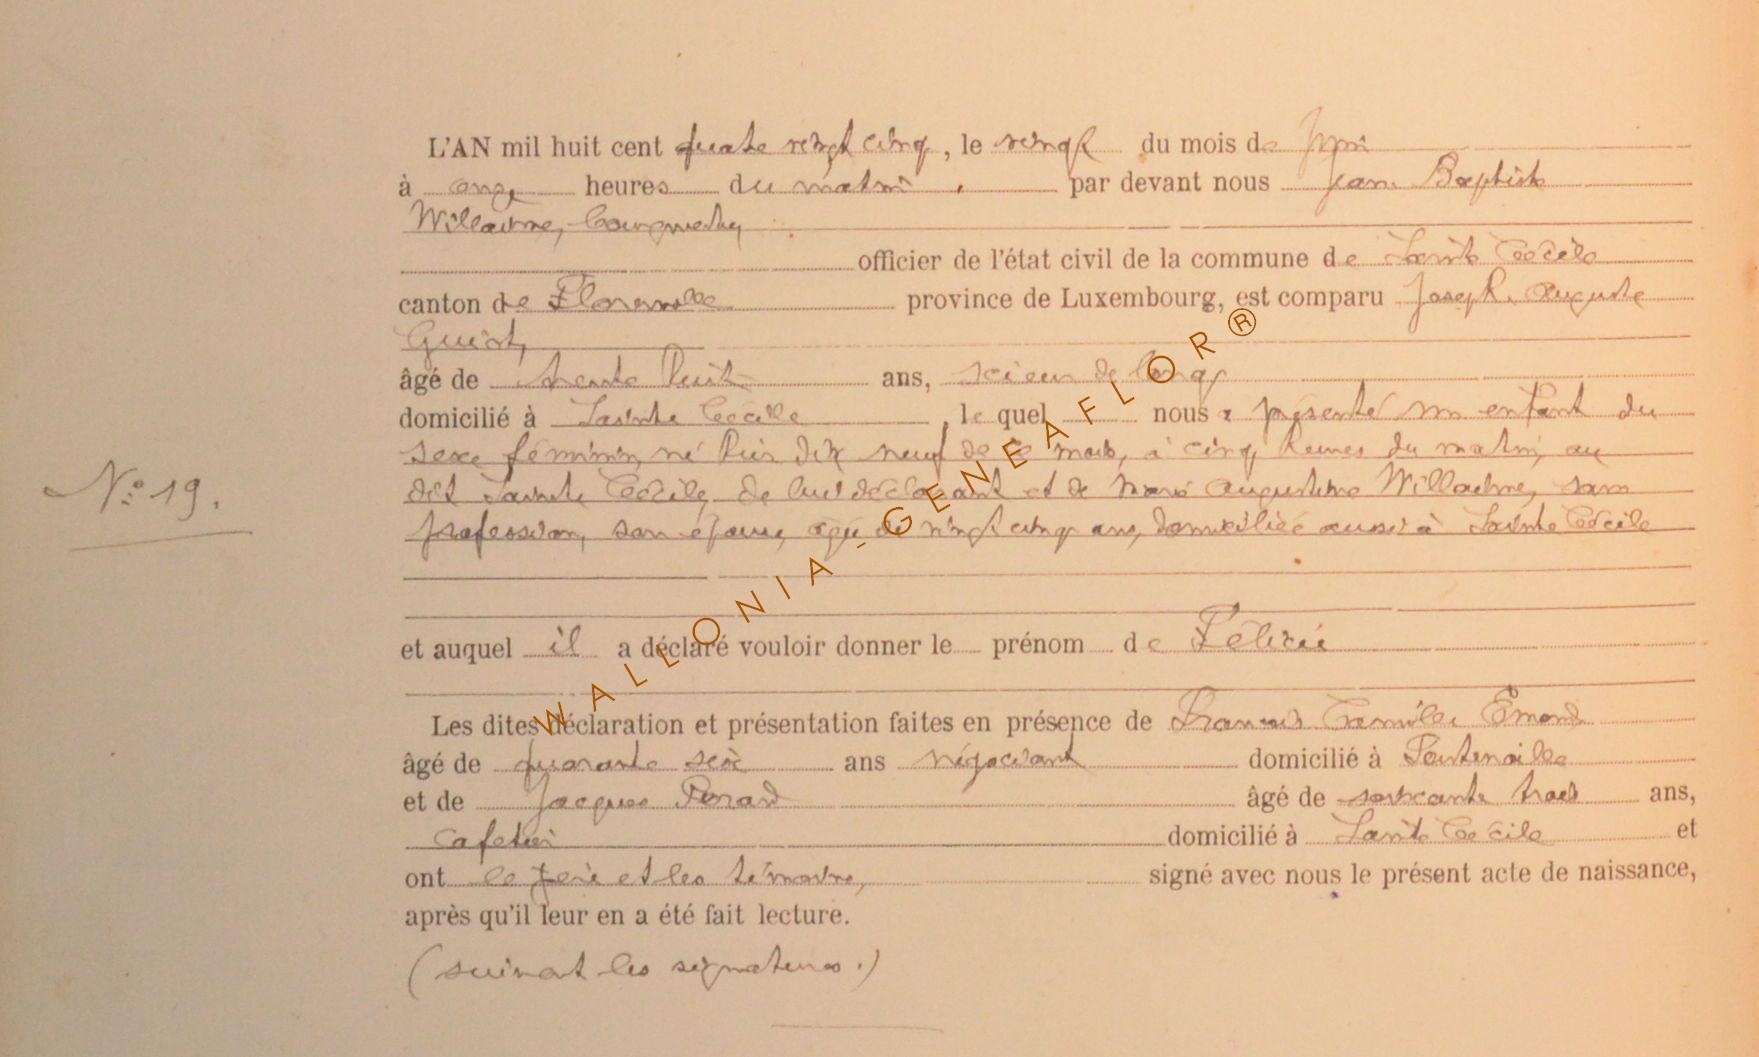 L'AN mil huit cent quatre vingt cinq, le vingt du mois de Juin
à onze heures du matin, par devant nous Jean Baptiste
Willaime, bourgmestre,
officier de l'état civil de la commune de Sainte Cécile
canton de Florenville province de Luxembourg, est comparu Joseph Auguste
Guiot,
âgé de trente huit ans, scieur de long,
domicilié à Sainte Cécile, lequel nous a présenté un enfant du
sexe féminin, né hier dix neuf de ce mois, à cinq heures du matin, au
dit Sainte Cécile, de lui déclarant et de Marie Augustine Willaime, sans
profession, son épouse, âgée de vingt cinq ans, domiciliée aussi à Sainte Cécile
N° 19.
et auquel il a déclaré vouloir donner le prénom de Félicie
Les dites déclaration et présentation faites en présence de François Camille Emond
âgé de quarante six ans négociant domicilié à Fontenoille
et de Jacques âgé de soixante trois ans,
cafetier domicilié à Sainte Cécile et
ont le père et les témoins, signé avec nous le présent acte de naissance,
après qu'il leur en a été fait lecture.
(suivent les signatures.)
WALLONIA-GENEAFLOR®